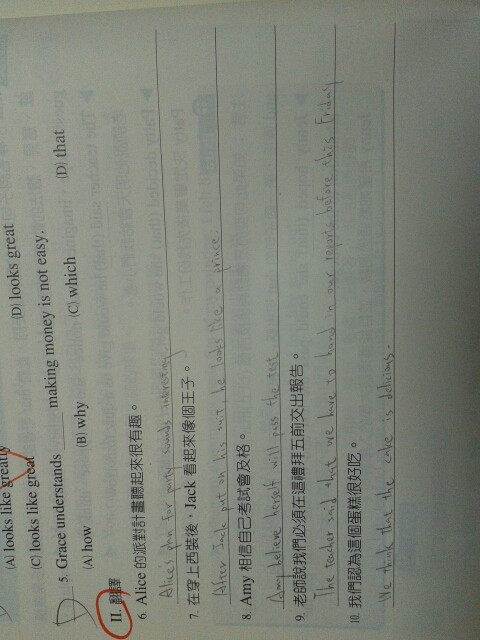 (A) looks like greatly
(C) looks like great (D) looks great
D 5. Grace understands ____ making money is not easy.
(A) how (B) why (C) which (D) that
II. 翻譯
6. Alice 的派對計畫聽起來很有趣。
Alice's plan for party sounds interesting.
7. 在穿上西裝後，Jack 看起來像個王子。
After Jack put on his suit, he looks like a prince.
8. Amy 相信自己考試會及格。
Amy believe herself will pass the test
9. 老師說我們必須在這禮拜五前交出報告。
The teacher said that we have to hand in our reports before this Friday
10. 我們認為這個蛋糕很好吃。
We think that the cake is delicious.